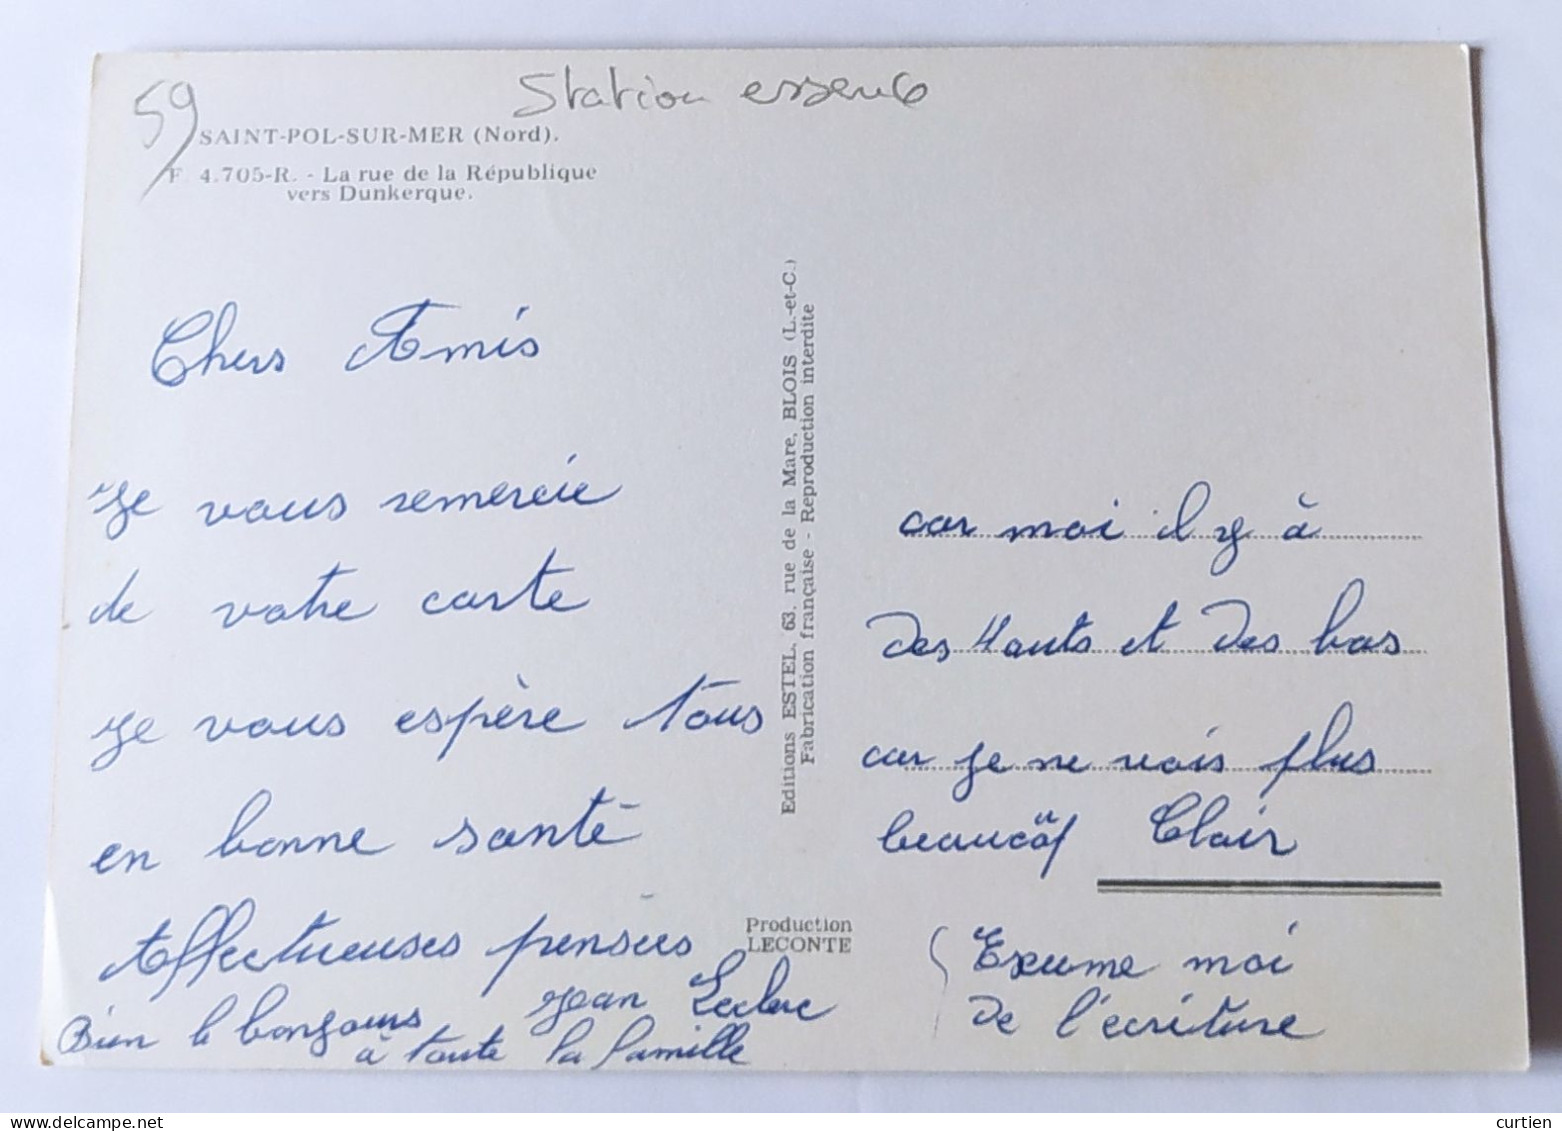 59
Station essence
SAINT-POL-SUR-MER (Nord).
F. 4.705-R. - La rue de la République
vers Dunkerque.
Chers Amis
Je vous remercie
de votre carte
je vous espère tous
en bonne santé
Affectueuses pensées
Jean Leclerc
Bien le bonjours
à toute la famille
Editions ESTEL, 63, rue de la Mare, BLOIS (L.-et-C.)
Fabrication française - Reproduction interdite
Production
LECONTE
car moi il y à
des Hauts et des bas
car je ne vois plus
beaucöf Clair
(Exume moi
de l'écriture
www.delcampe.net
curtien